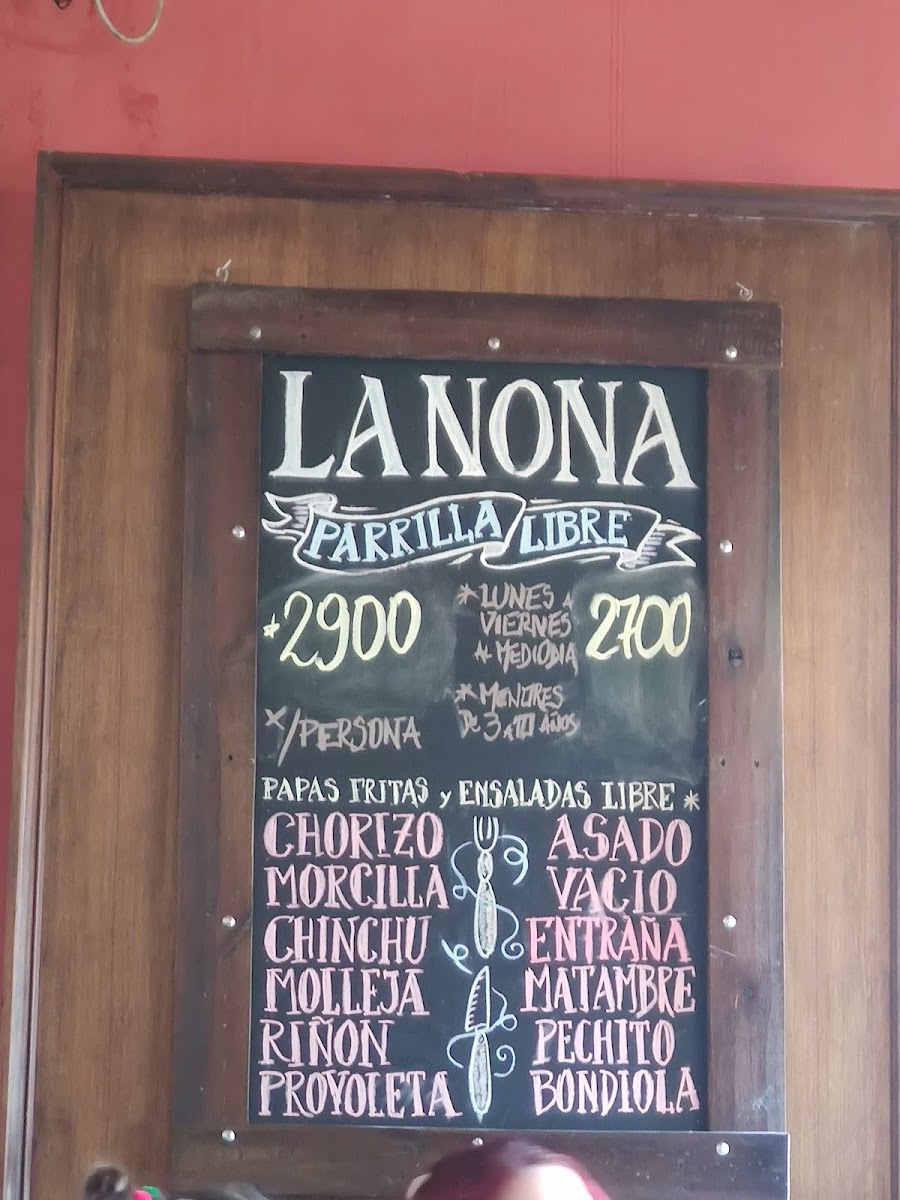 LA NONA
PARRILLA LIBRE
*2900
X/PERSONA
*LUNES A
VIERNES
AL MEDIODIA
2700
*MENORES
DE 3 A 10 AÑOS
PAPAS FRITAS y ENSALADAS LIBRE *
CHORIZO
MORCILLA
CHINCHU
MOLLEJA
RIÑON
PROVOLETA
ASADO
VACIO
ENTRAÑA
MATAMBRE
PECHITO
BONDIOLA